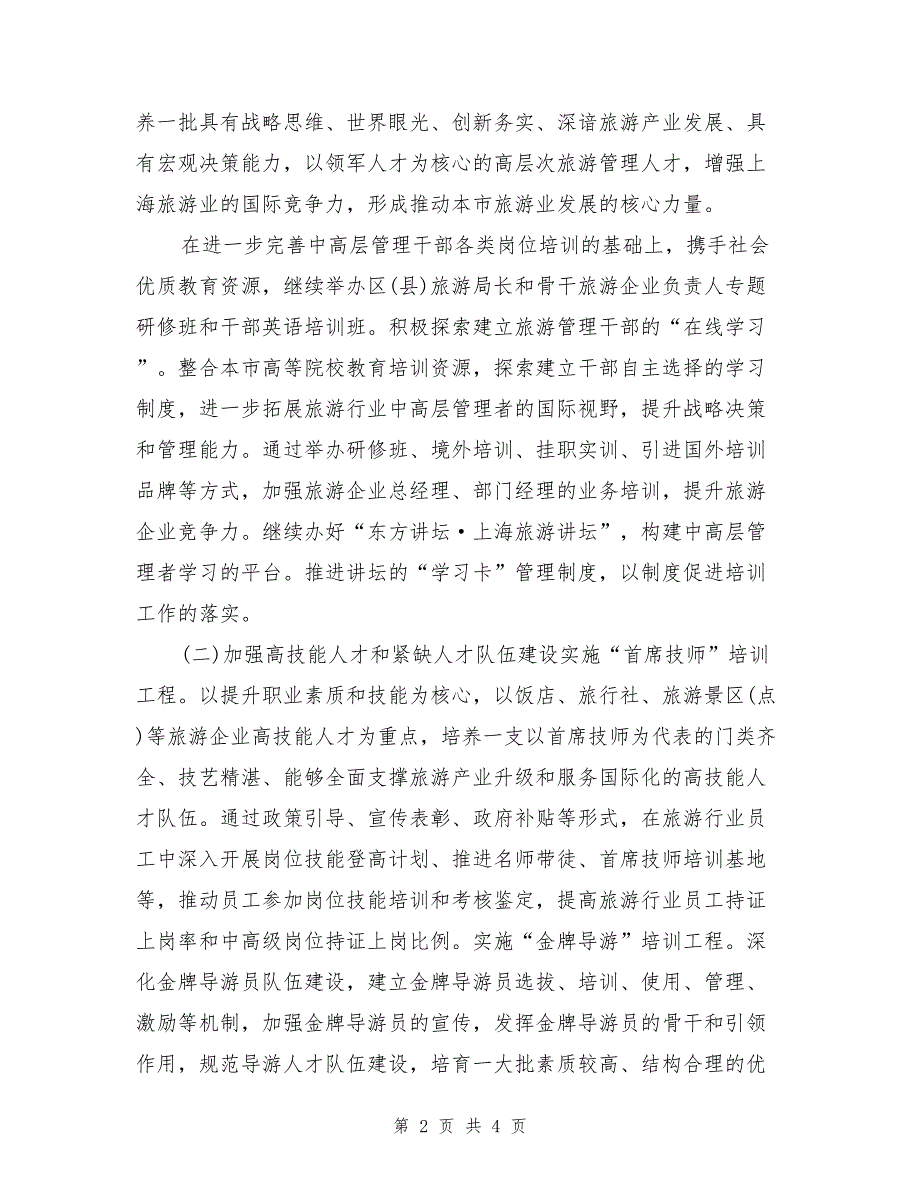 养一批具有战略思维、世界眼光、创新务实、深谙旅游产业发展、具
有宏观决策能力，以领军人才为核心的高层次旅游管理人才，增强上
海旅游业的国际竞争力，形成推动本市旅游业发展的核心力量。
在进一步完善中高层管理干部各类岗位培训的基础上，携手社会
优质教育资源，继续举办区(县)旅游局长和骨干旅游企业负责人专题
研修班和干部英语培训班。积极探索建立旅游管理干部的“在线学习
”。整合本市高等院校教育培训资源，探索建立干部自主选择的学习
制度，进一步拓展旅游行业中高层管理者的国际视野，提升战略决策
和管理能力。通过举办研修班、境外培训、挂职实训、引进国外培训
品牌等方式，加强旅游企业总经理、部门经理的业务培训，提升旅游
企业竞争力。继续办好“东方讲坛·上海旅游讲坛”，构建中高层管
理者学习的平台。推进讲坛的“学习卡”管理制度，以制度促进培训
工作的落实。
(二)加强高技能人才和紧缺人才队伍建设实施“首席技师”培训
工程。以提升职业素质和技能为核心，以饭店、旅行社、旅游景区(点
)等旅游企业高技能人才为重点，培养一支以首席技师为代表的门类齐
全、技艺精湛、能够全面支撑旅游产业升级和服务国际化的高技能人
才队伍。通过政策引导、宣传表彰、政府补贴等形式，在旅游行业员
工中深入开展岗位技能登高计划、推进名师带徒、首席技师培训基地
等，推动员工参加岗位技能培训和考核鉴定，提高旅游行业员工持证
上岗率和中高级岗位持证上岗比例。实施“金牌导游”培训工程。深
化金牌导游员队伍建设，建立金牌导游员选拔、培训、使用、管理、
激励等机制，加强金牌导游员的宣传，发挥金牌导游员的骨干和引领
作用，规范导游人才队伍建设，培育一大批素质较高、结构合理的优
第 2 页 共 4 页